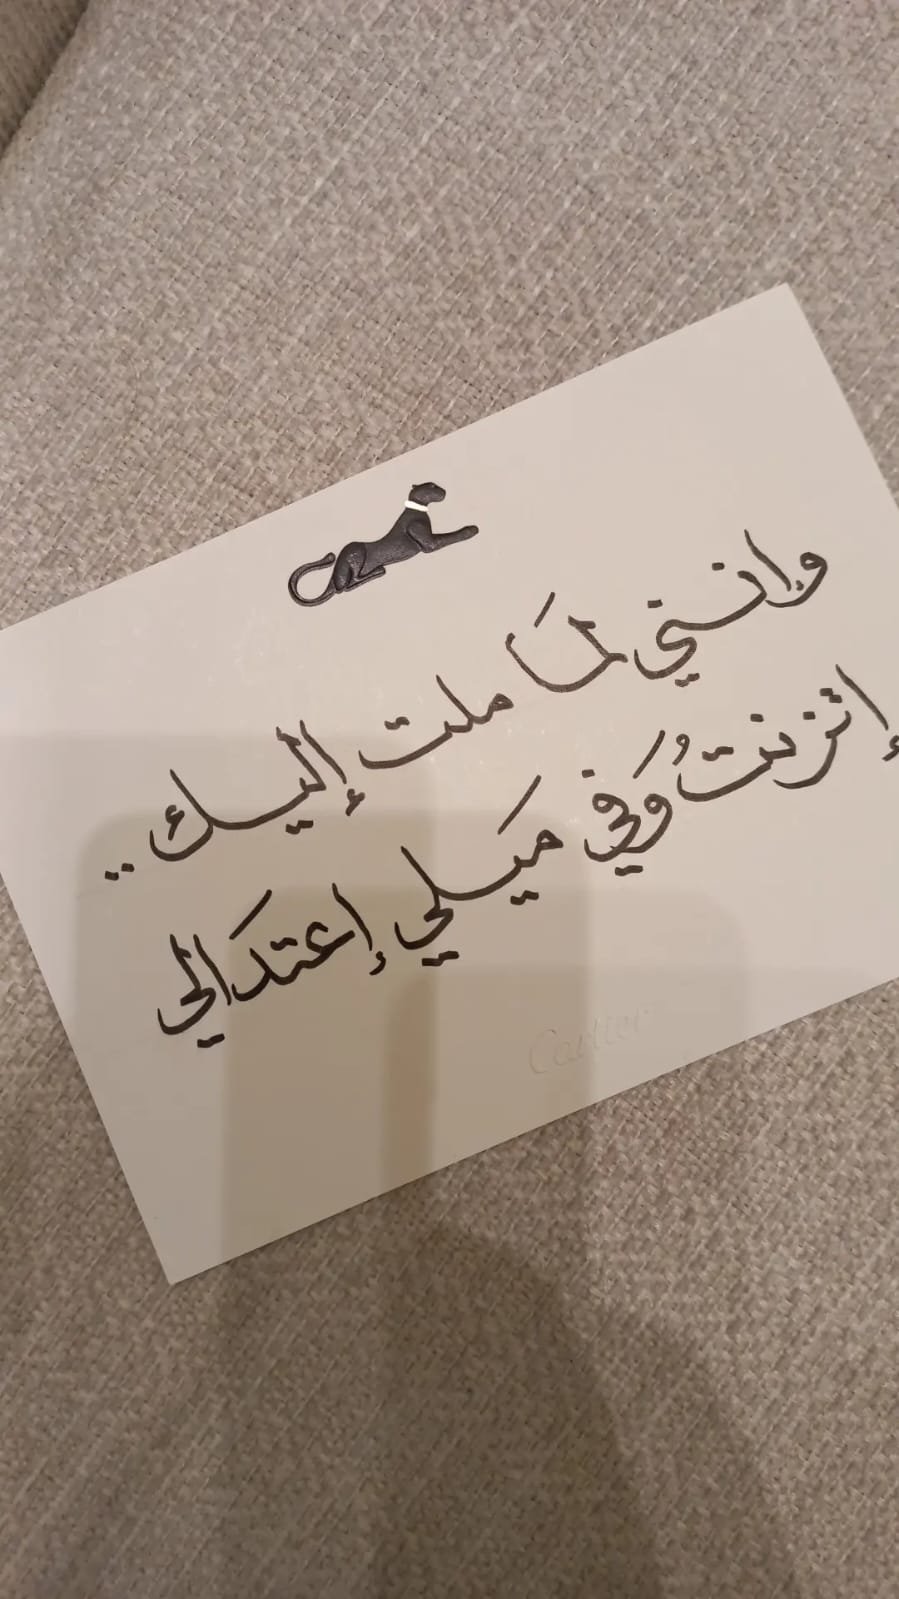 وإنني لمَا ملت إليك ..
إتزنتُ وَفي مَيلي إعتدَالي
Cartier